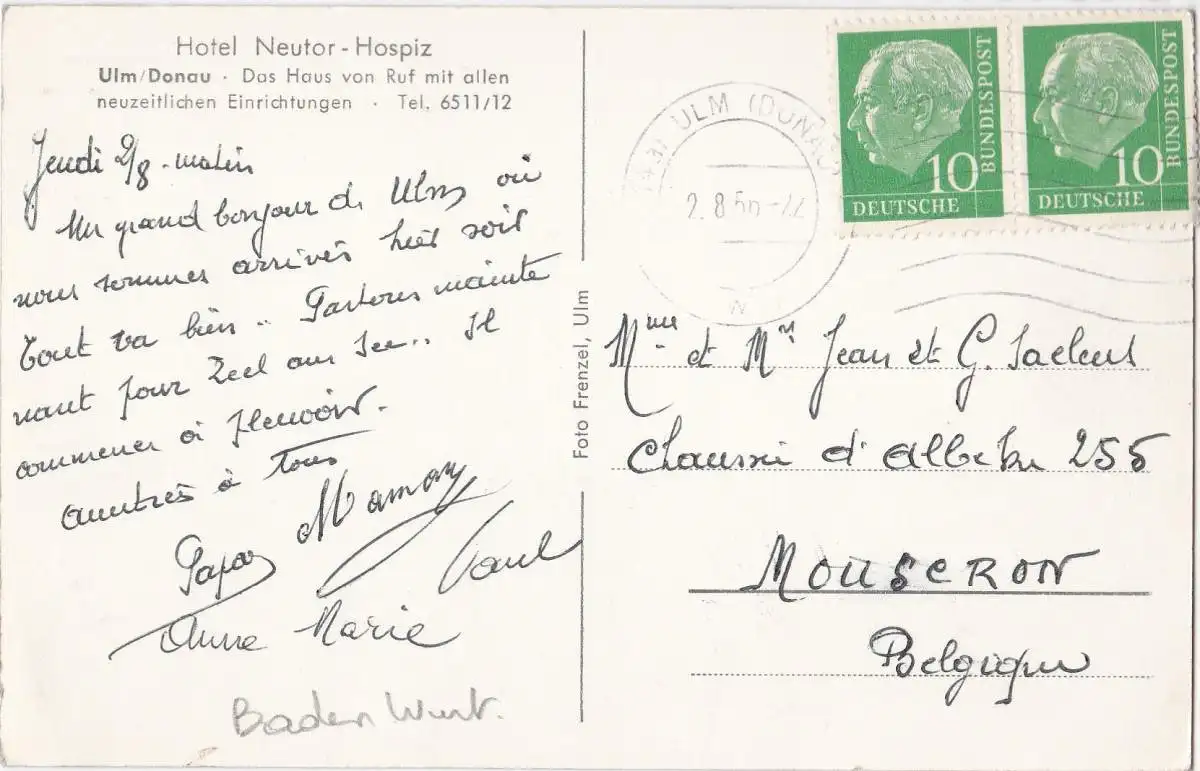 Hotel Neutor-Hospiz
Ulm/Donau · Das Haus von Ruf mit allen
neuzeitlichen Einrichtungen · Tel. 6511/12
Jeudi 2/8 - matin
Un grand bonjour de Ulm où
nous sommes arrivés hier soir
Tout va bien .. Partons mainte
nant pour Zell am See.. Il
commence à pleuvoir.
à Tous
Papa Maman
Paul
Anne Marie
Baden Wurt.
Foto Frenzel, Ulm
ULM (DONAU)
2.8.56-22
DEUTSCHE BUNDESPOST 10
DEUTSCHE BUNDESPOST 10
Mme et Mr Jean et G.
Chaussée d'Albeke 255
MOUSCRON
Belgique